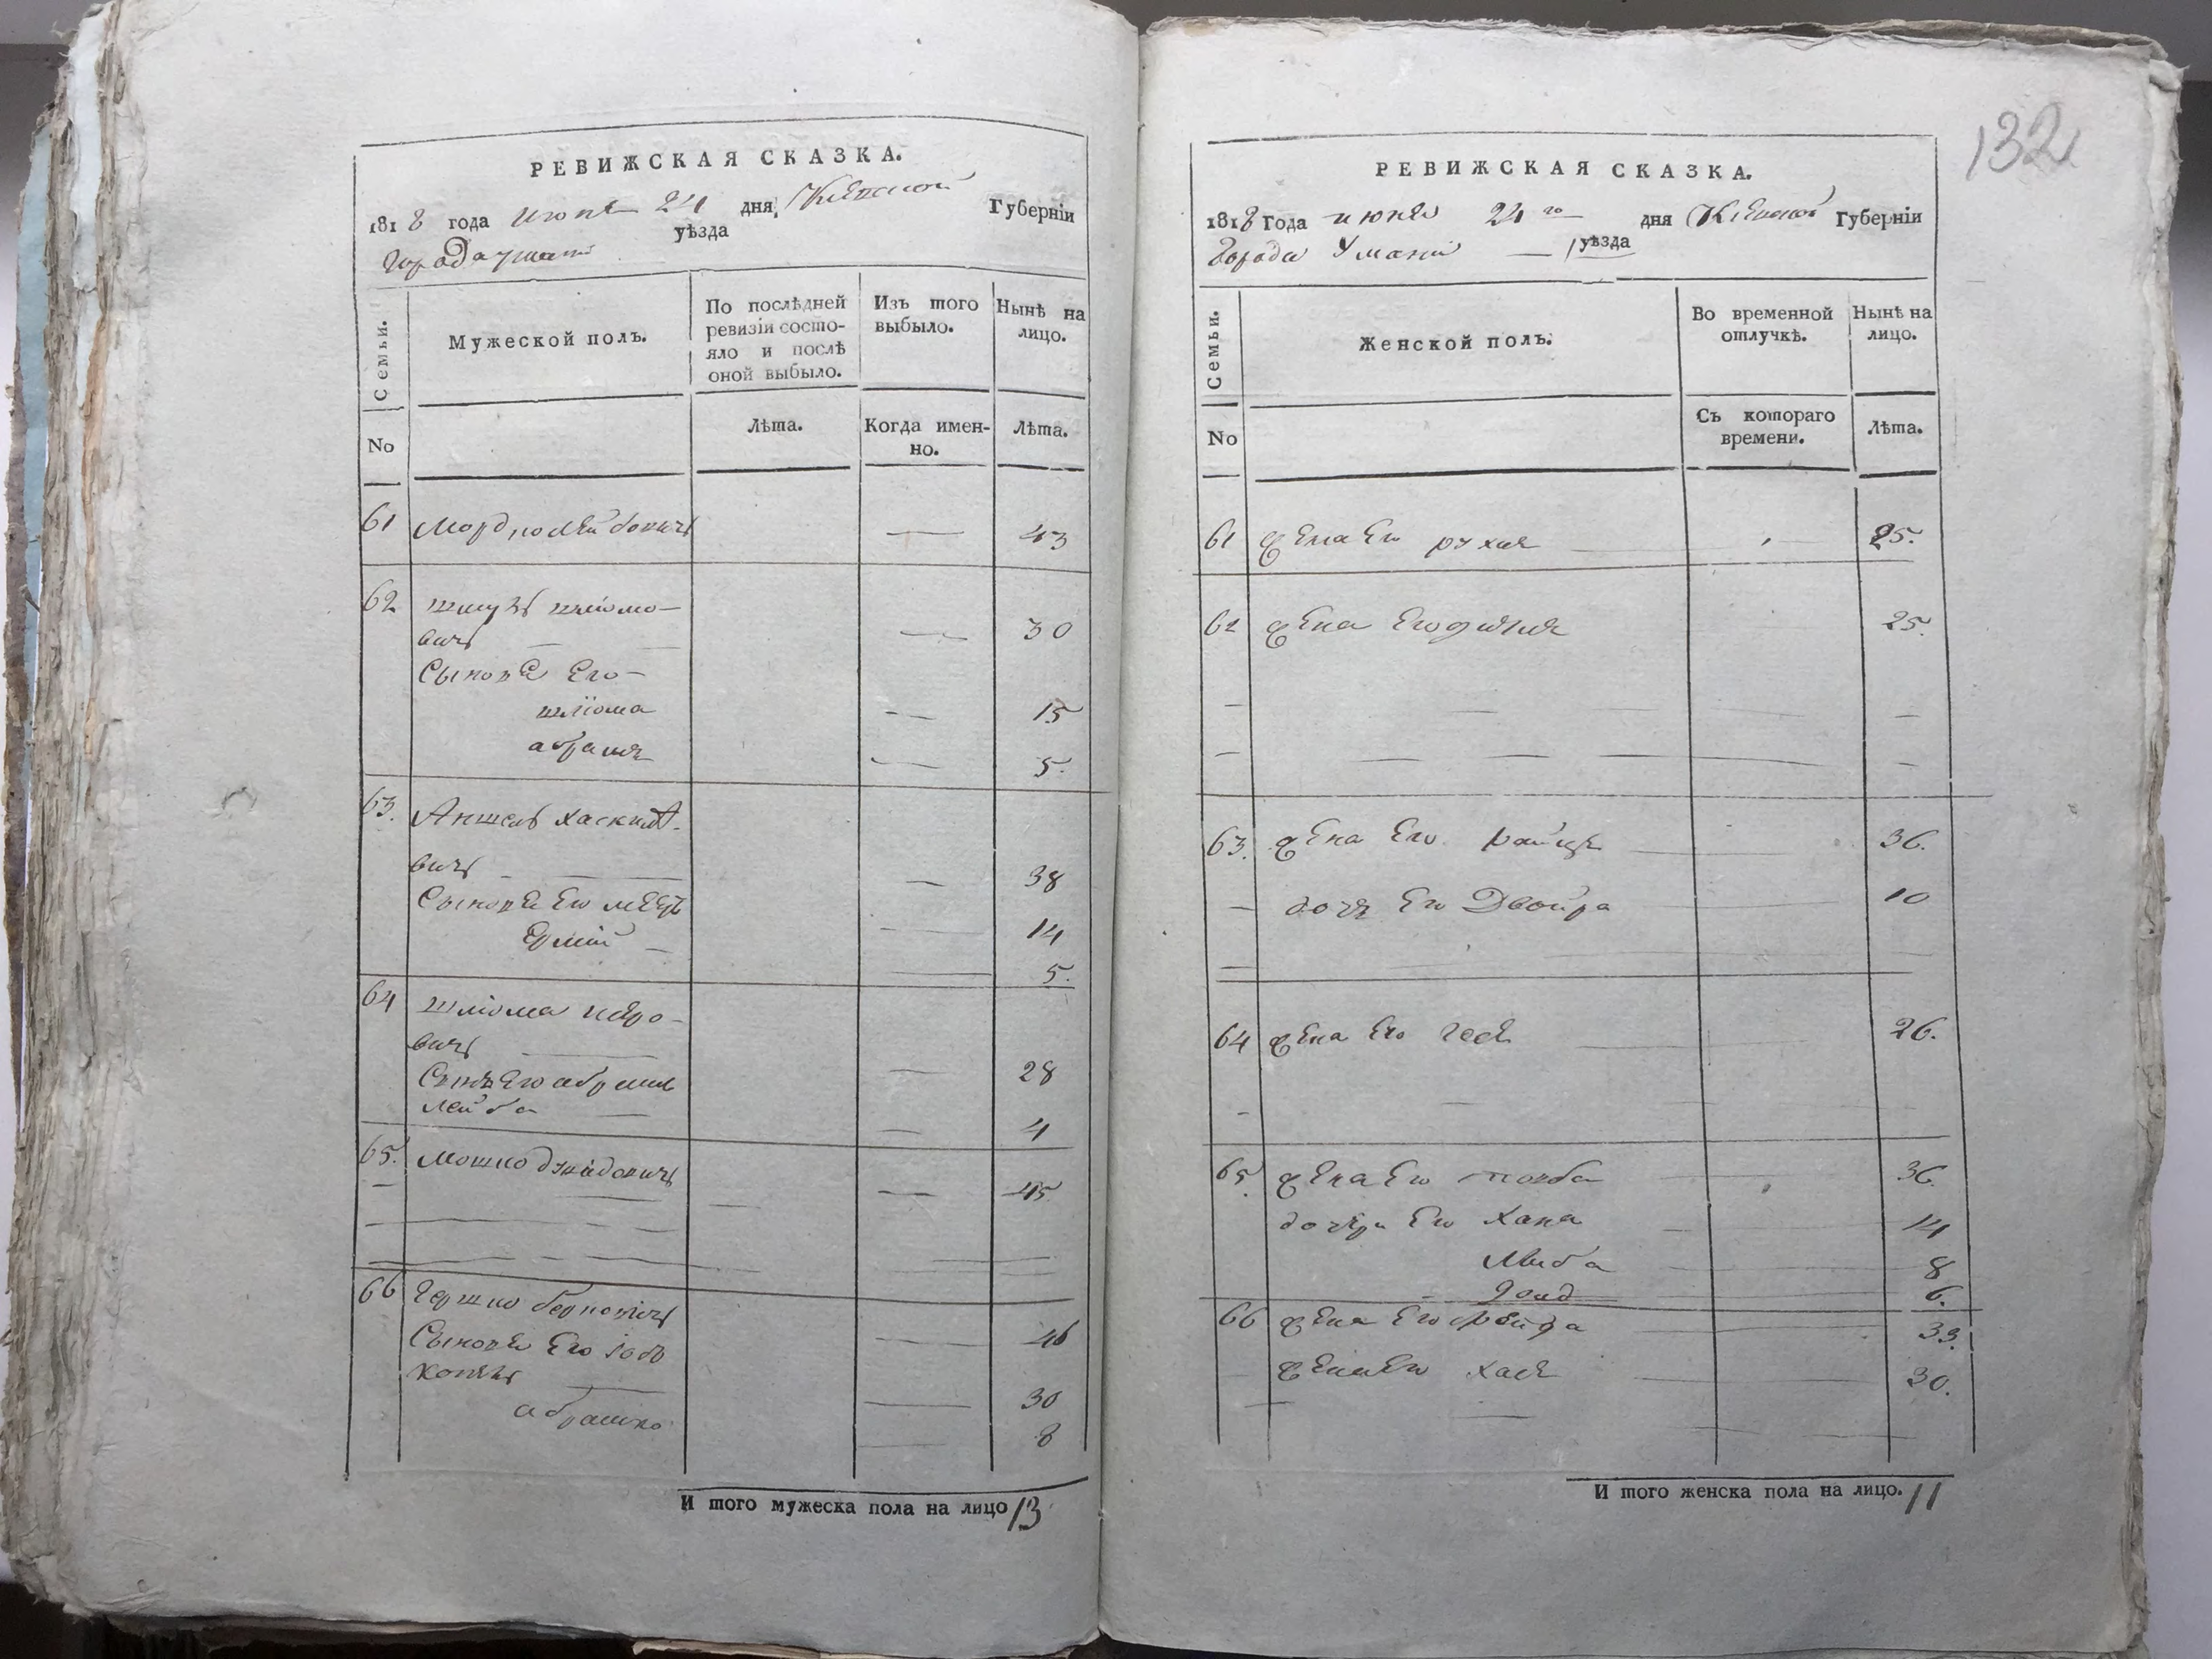 132
РЕВИЖСКАЯ СКАЗКА.
1818 года июня 24 дня, Кіевской Губерніи
города умани уѣзда
Семьи.
Мужеской полъ.
По послѣдней ревизіи состояло и послѣ оной выбыло.
Изъ того выбыло.
Нынѣ на лицо.
No
Лѣта.
Когда именно.
Лѣта.
61 Мордко Лейбовичъ — 43
62 шмулъ шліомо-
вичъ — 30
Сыновя Его
шліома — 15
абрамъ — 5.
63. Аншель хаскилѣ-
вичъ — 38
Сыновя Его мееръ — 14
— 5.
64 шліома
вичъ — 28
Сынъ Его абрамъ
лейба — 4
65. мошко давидовичъ — 45
66 гершко берковичъ — 46
Сыновя Его
— 30
абрамко — 8
И того мужеска пола на лицо 13
РЕВИЖСКАЯ СКАЗКА.
1818 Года июня 24 го дня Кіевской Губерніи
Города Умани — уѣзда
Семьи.
Женской полъ.
Во временной отлучкѣ.
Нынѣ на лицо.
No
Съ котораго времени.
Лѣта.
61 жена Его рухля — 25.
62 жена Его 25.
63. жена Его 36.
— дочь Его Двойра 10
64 жена Его 26.
65. жена Его товба 36.
дочери Его Хана 14
Либа 8
6.
66 жена Его фейга 33.
жена Его хася 30.
И того женска пола на лицо. 11